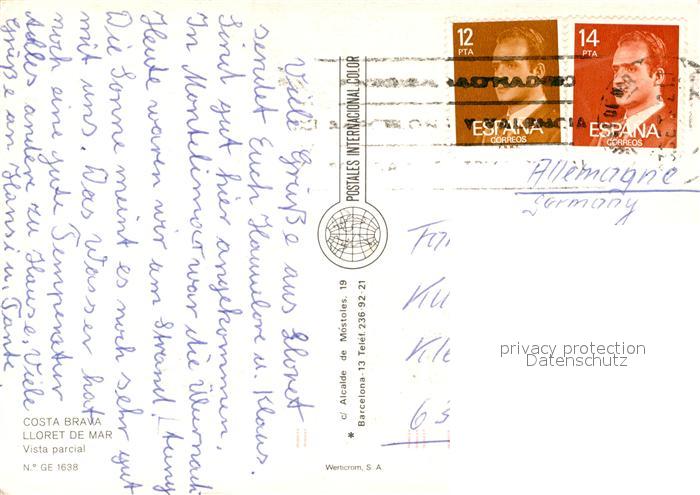 Viele Grüße aus Lloret
sendet Euch Hannelore u. Klaus.
Sind gut hier angekommen,
In Montelimar war die Übernach
Heute waren wir am Strand! tung
Die Sonne meint es noch sehr gut
mit uns. Das Wasser hat
noch eine gute Temperatur
Alles andere zu Hause. Viele
Grüße an Hansi u. Tante.
COSTA BRAVA
LLORET DE MAR
Vista parcial
N.º GE 1638
POSTALES INTERNACIONAL COLOR
c/ Alcalde de Móstoles, 19
* Barcelona-13 Teléf. 236-92-21
Werticrom, S. A.
12
PTA
ESPAÑA
CORREOS
14
PTA
ESPAÑA
CORREOS
Y VALENCIA
Allemagne
Germany
privacy protection
Datenschutz